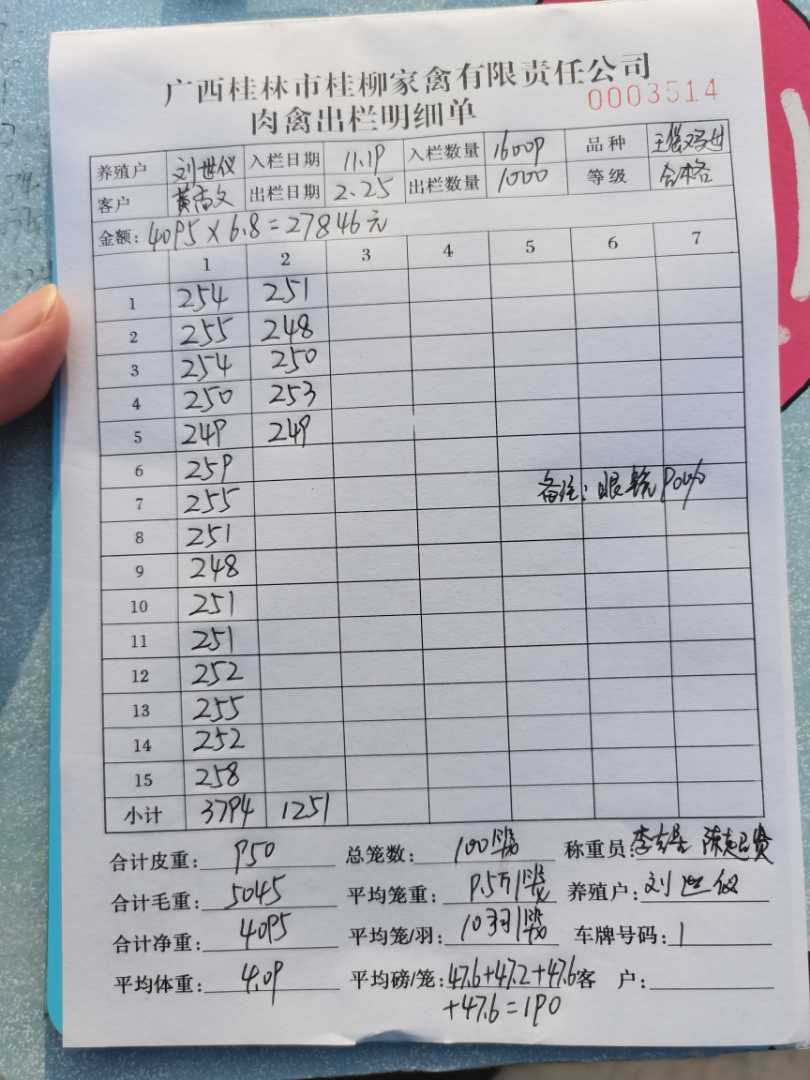 广西桂林市桂柳家禽有限责任公司
肉禽出栏明细单 0003514
养殖户 刘世仪 入栏日期 11.19 入栏数量 16009 品种
客户 黄高文 出栏日期 2.25 出栏数量 1000 等级 合格
金额: 4095×6.8=27846元
1 2 3 4 5 6 7
1 254 251
2 255 248
3 254 250
4 250 253
5 249 249
6 259
7 255 备注: 90%
8 251
9 248
10 251
11 251
12 252
13 255
14 252
15 258
小计 3794 1251
合计皮重: 950 总笼数: 100 称重员:
合计毛重: 5045 平均笼重: 9.5 养殖户: 刘世仪
合计净重: 4095 平均笼/羽: 10羽 车牌号码:
平均体重: 4.09 平均磅/笼: 47.6+47.2+47.6 客 户:
+47.6=190